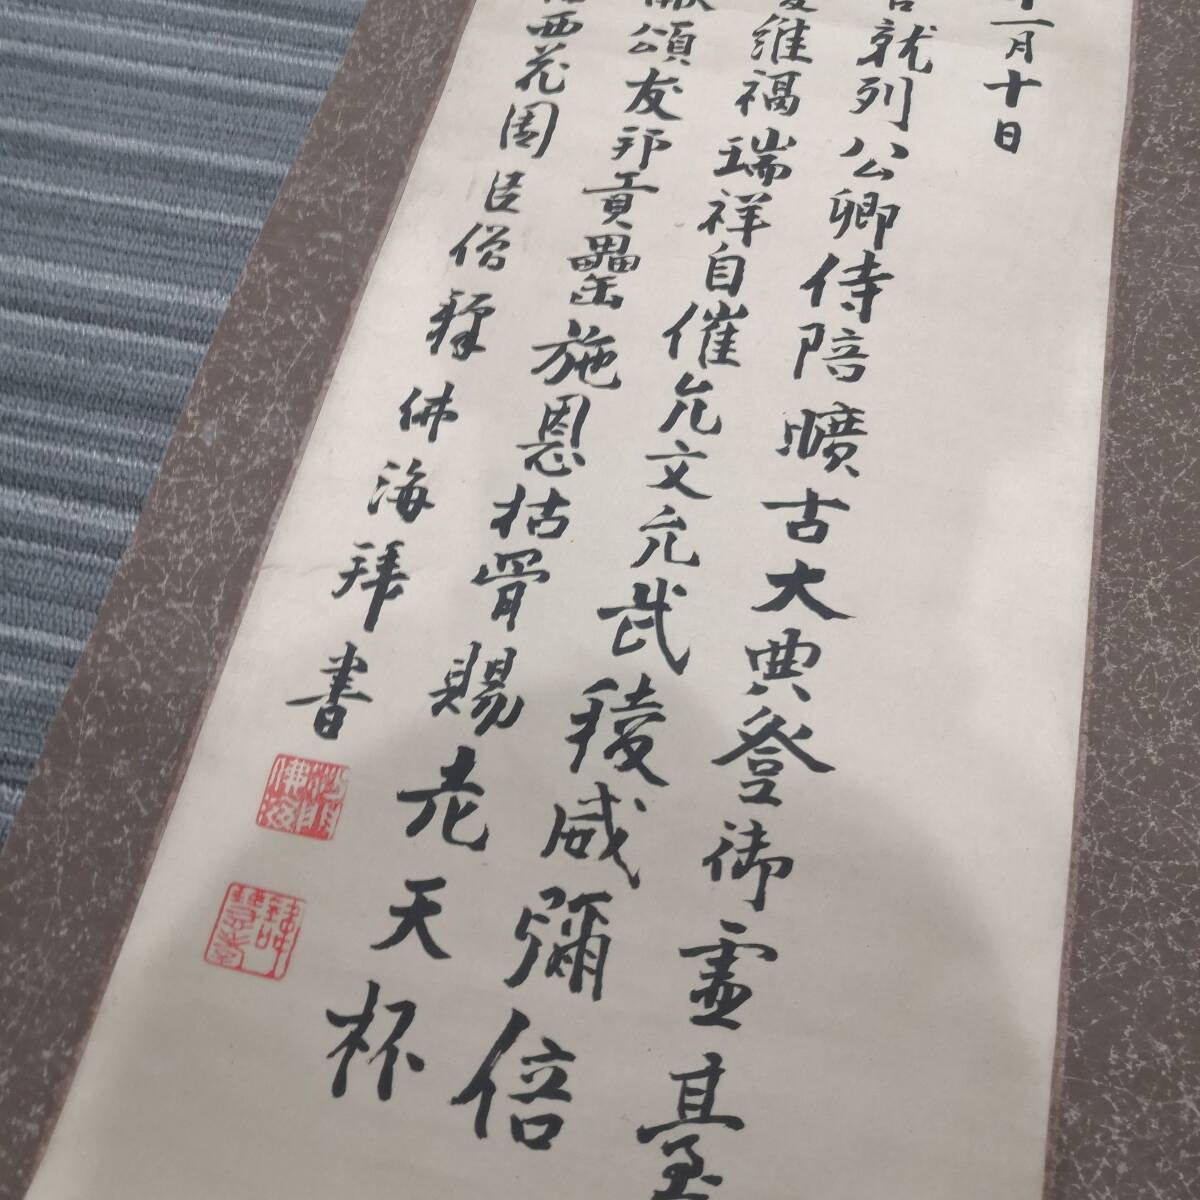 十一月十日
就列公卿侍陪曠古大典登御霊臺
維禑瑞祥自催允文允武稜威彌倍
頌友邦貢罍缶施恩枯骨賜老天杯
西花園臣僧釋佛海拜書
沙門佛海